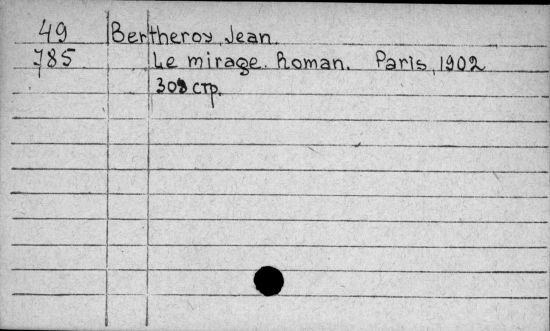 49 Bertheroy, Jean.
785 Le mirage. Roman. Paris, 1902
308 стр.